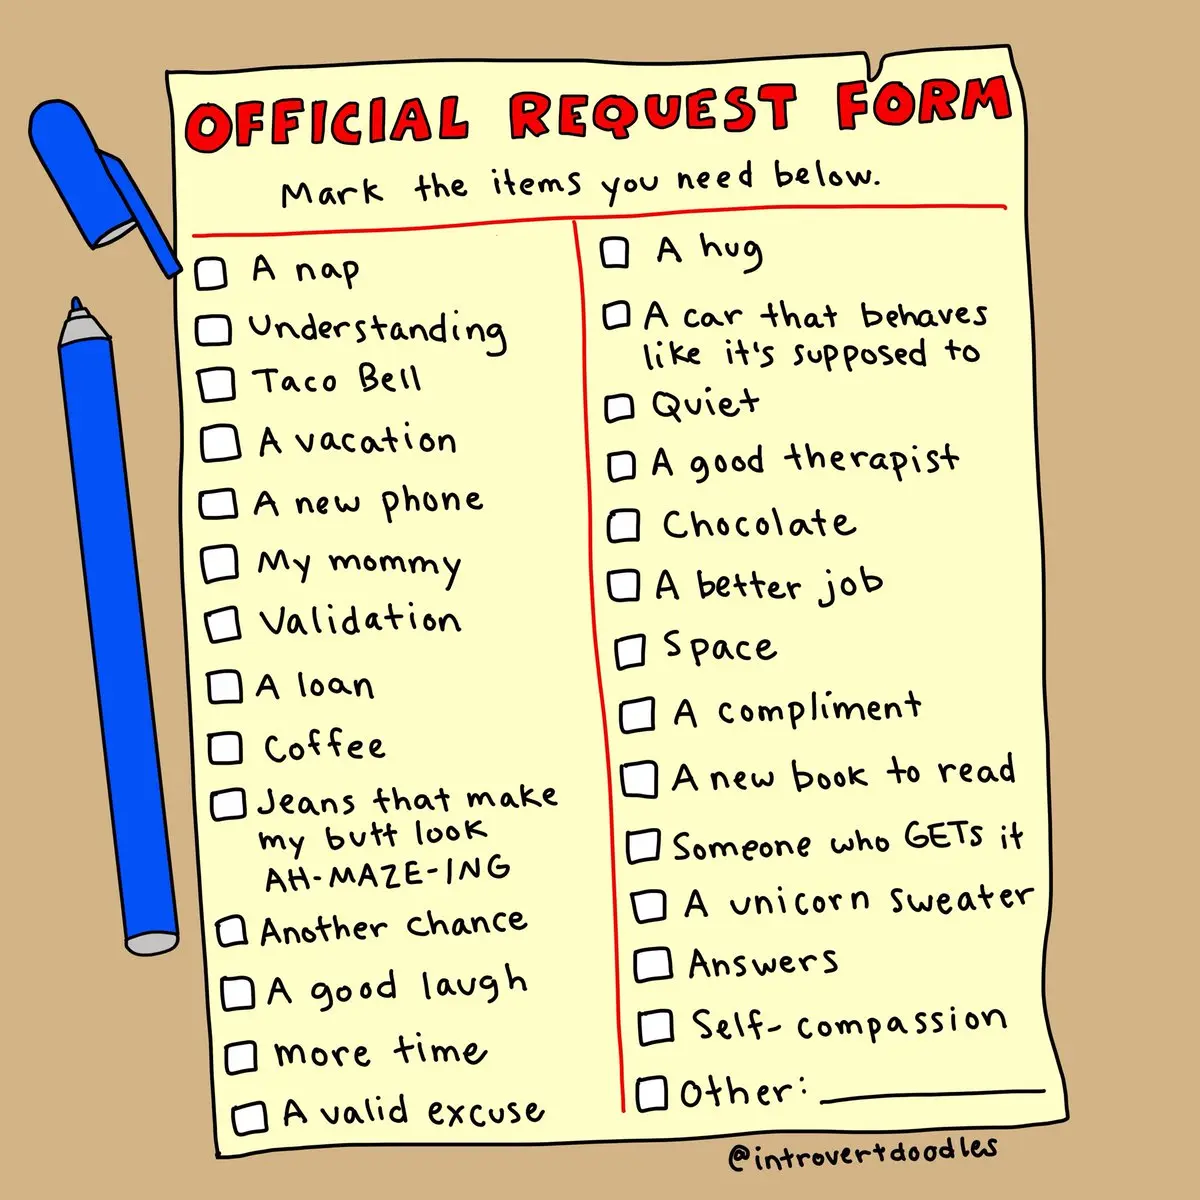 OFFICIAL REQUEST FORM
Mark the items you need below.
A nap
Understanding
Taco Bell
A vacation
A new phone
My mommy
Validation
A loan
Coffee
Jeans that make
my butt look
AH-MAZE-ING
Another chance
A good laugh
more time
A valid excuse
A hug
A car that behaves
like it's supposed to
Quiet
A good therapist
Chocolate
A better job
Space
A compliment
A new book to read
Someone who GETs it
A unicorn sweater
Answers
Self-compassion
Other:
@introvertdoodles